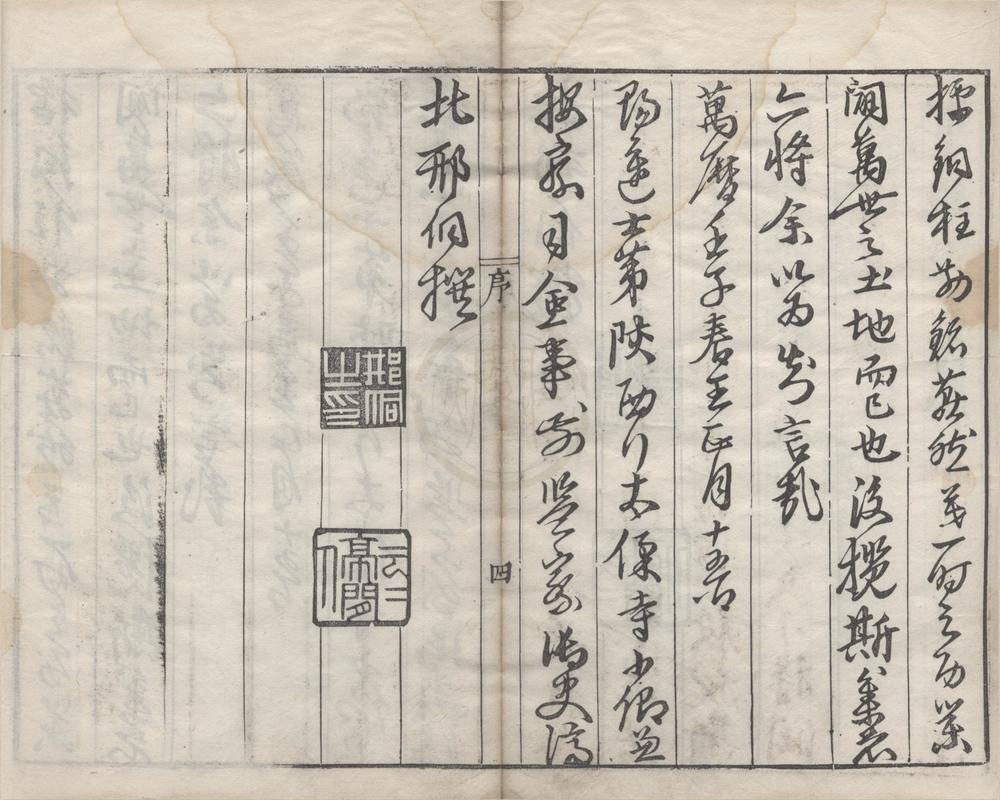 標銅柱勒銘燕然一時之功業
闢萬世之土地而已也後攬斯集者
亦將余以為知言哉
萬曆壬子春王正月十五日
賜進士第陝西行太僕寺少卿兼
按察司僉事前監察御史濟
序 四
北邢侗撰
邢侗之印